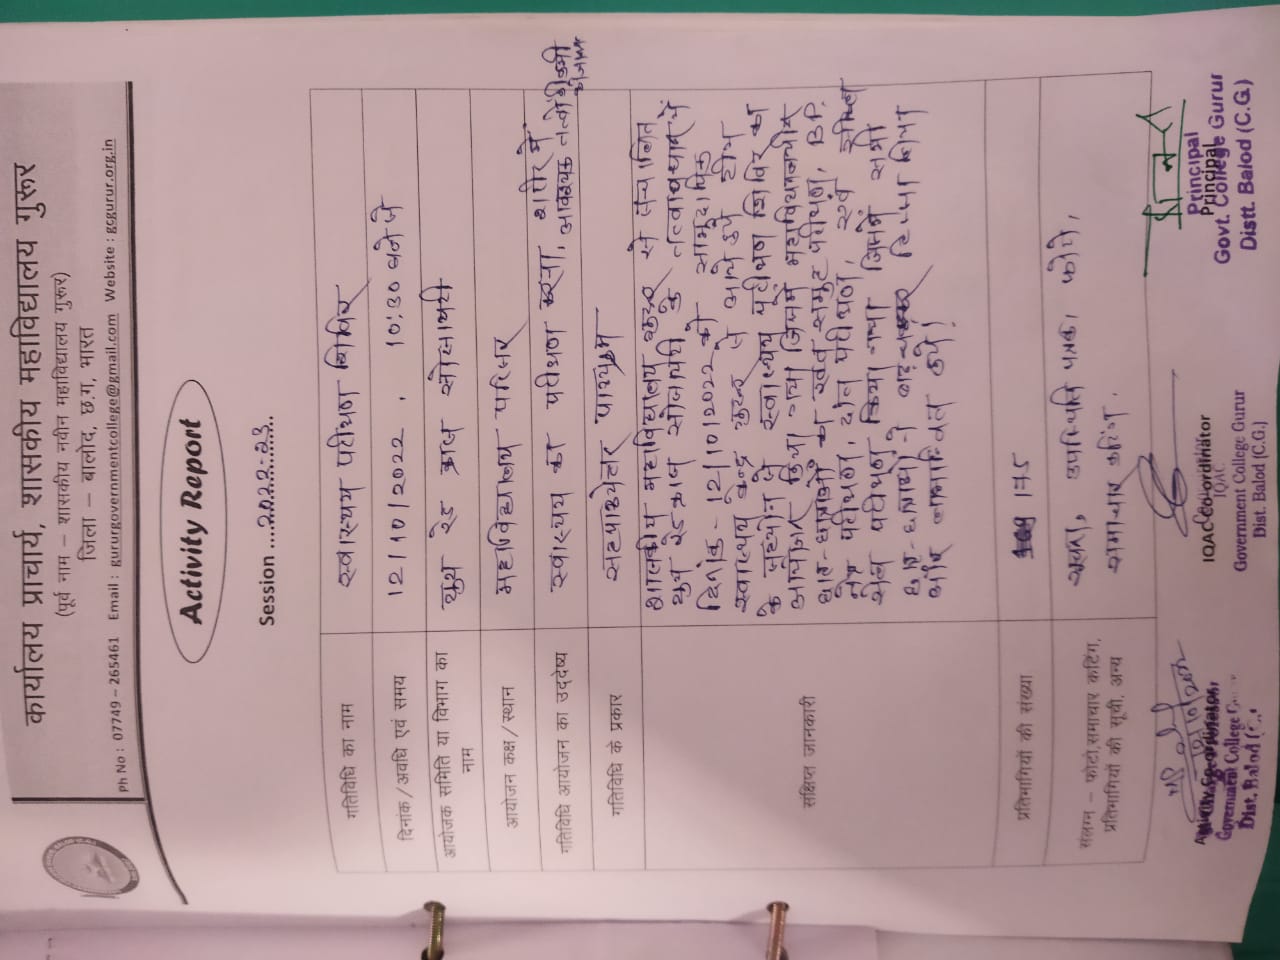 कार्यालय प्राचार्य, शासकीय महाविद्यालय गुरूर
(पूर्व नाम – शासकीय नवीन महाविद्यालय गुरूर)
जिला – बालोद, छ.ग, भारत
Ph No : 07749 – 265461 Email : gururgovernmentcollege@gmail.com Website : gcgurur.org.in
Activity Report
Session ....2022-23....
गतिविधि का नाम
स्वास्थ्य परीक्षण शिविर
दिनांक/अवधि एवं समय
12/10/2022, 10:30 बजे से
आयोजक समिति या विभाग का
नाम
यूथ रेड क्रास सोसायटी
आयोजन कक्ष/स्थान
महाविद्यालय परिसर
गतिविधि आयोजन का उद्देष्य
स्वास्थ्य का परीक्षण करना, शरीर में
आवश्यक तत्वों की कमी
गतिविधि के प्रकार
सहपाठ्येत्तर पाठ्यक्रम
संक्षिप्त जानकारी
शासकीय महाविद्यालय गुरूर में संचालित
यूथ रेडक्रास सोसायटी के तत्वावधान में
दिनांक - 12/10/2022 को सामुदायिक
स्वास्थ्य केन्द्र गुरूर से आये हुये टीम
के सहयोग से स्वास्थ्य परीक्षण शिविर का
आयोजन किया गया जिसमें महाविद्यालयीन
छात्र-छात्राओं का समूह परीक्षण, BP,
नेत्र परीक्षण, दांत परीक्षण, एवं
परीक्षण किया गया जिसमें सभी
छात्र-छात्राओं ने बढ़ चढ़कर हिस्सा लिया
और लाभान्वित हुये।
प्रतिभागियों की संख्या
175
संलग्न – फोटो,समाचार कटिंग,
प्रतिभागियों की सूची, अन्य
सूचना, उपस्थिति पत्रक, फोटो,
समाचार कटिंग.
IQAC Co-ordinator
IQAC
Government College Gurur
Dist. Balod (C.G.)
Principal
Principal
Govt. College Gurur
Distt. Balod (C.G.)
Government College
Dist. Balod